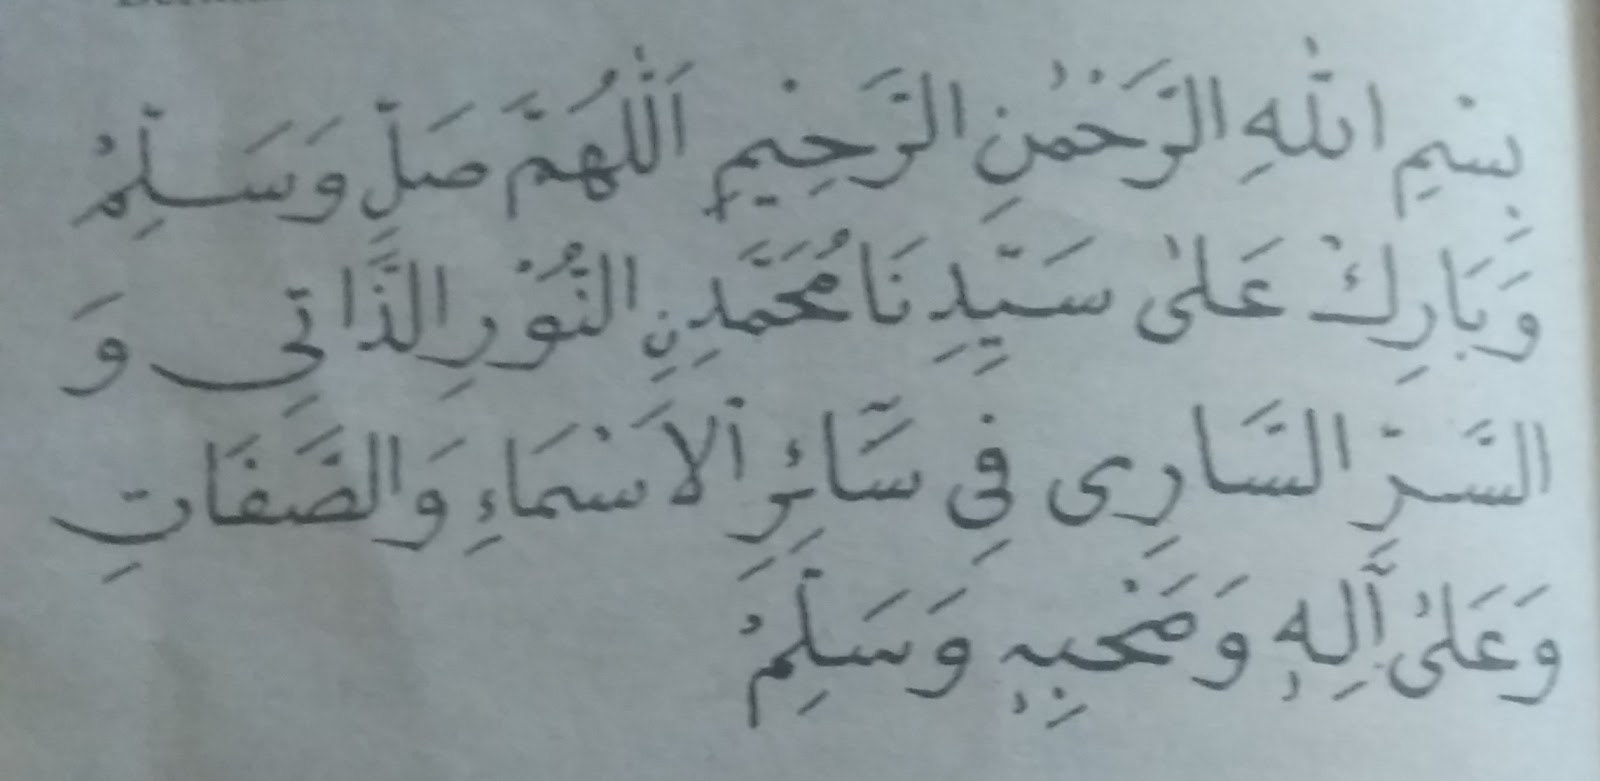 بِسْمِ اللّٰهِ الرَّحْمٰنِ الرَّحِيْمِ اَللّٰهُمَّ صَلِّ وَسَلِّمْ
وَبَارِكْ عَلٰى سَيِّدِنَا مُحَمَّدِنِ النُّوْرِ الذَّاتِى وَ
السَّرِّ السَّارِى فِى سَّائِرِ اْلاَسْمَاءِ وَالصَّفَاتِ
وَعَلٰى آلِهٖ وَصَحْبِهٖ وَسَلِّمْ